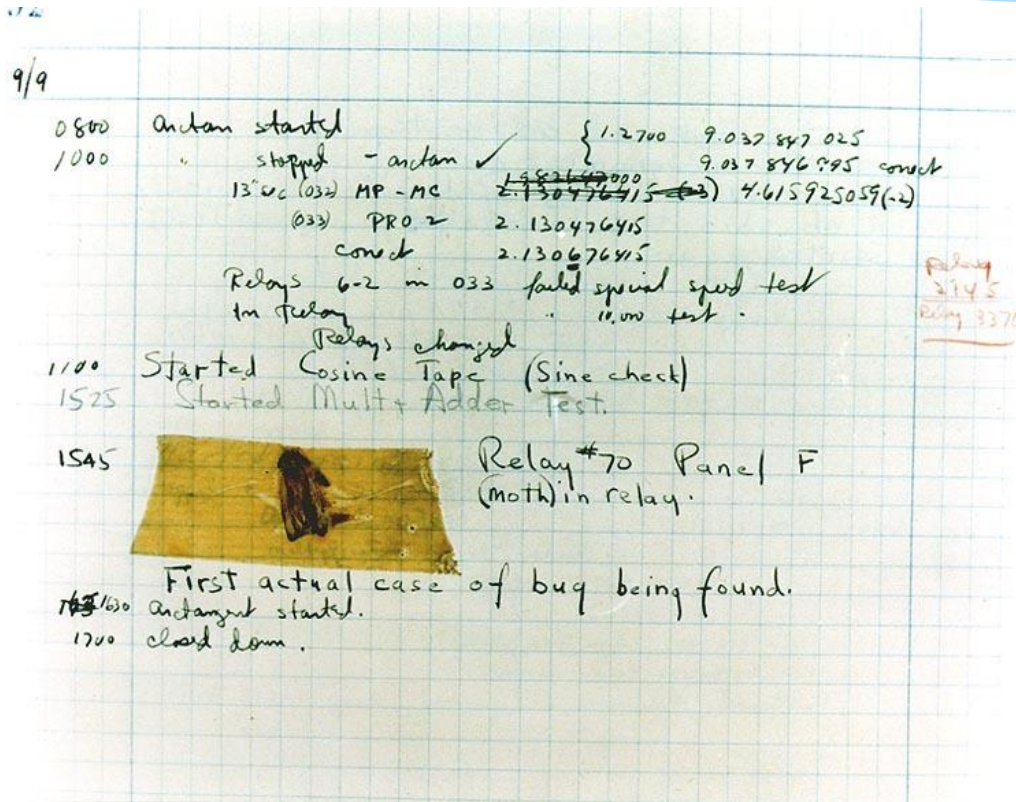 9/9
0800 arctan started { 1.2700 9.037 847 025
1000 " stopped - arctan ✓ { 9.037 846 995 correct
13" sec (032) MP - MC 1.982647000 2.130476415 (-3) 4.615925059(-2)
(033) PRO 2 2.130476415
correct 2.130676415
Relays 6-2 in 033 failed special speed test
In Relay " 10,000 test .
Relays changed
Relay
2145
Relay 3370
1100 Started Cosine Tape (Sine check)
1525 Started Mult + Adder Test.
1545 Relay #70 Panel F
(moth) in relay.
First actual case of bug being found.
1630 arctangent started.
1700 closed down .